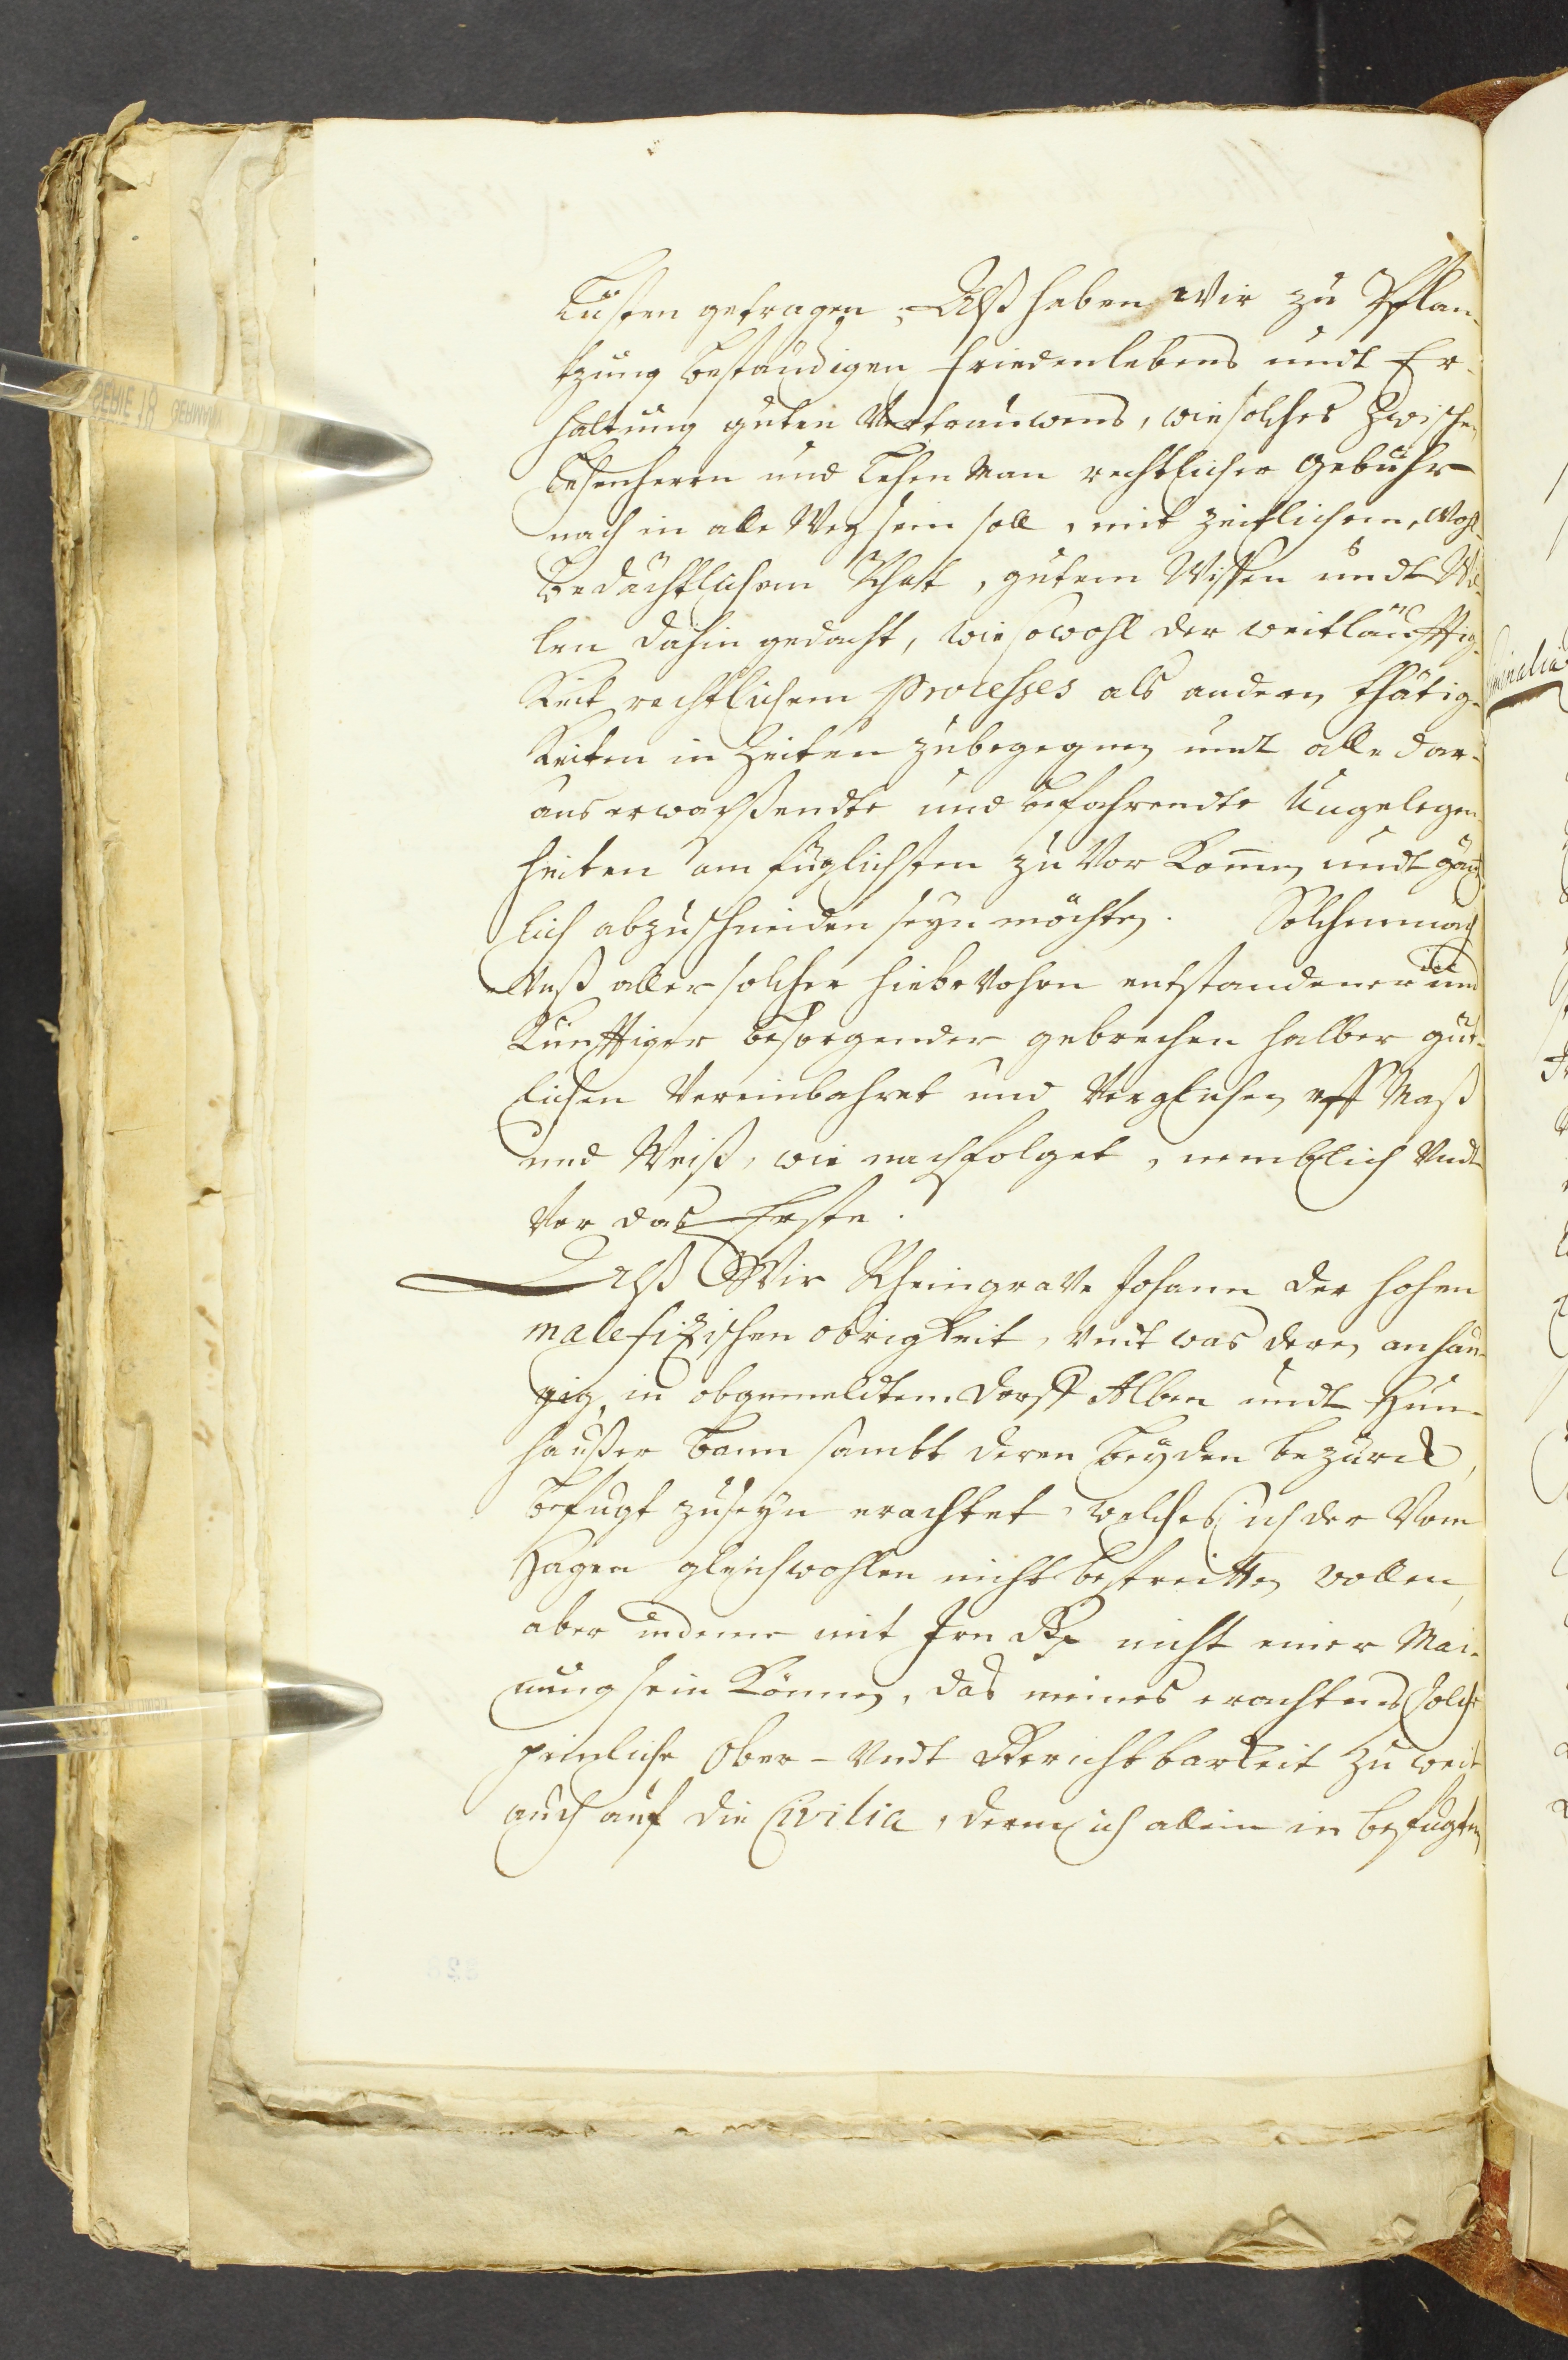 Lüsten getragen, Alß haben Wir zu Pflan-
tzung beständigen friedenlebens undt Er-
haltung guten Vertrauwens, wie solches zwischen
Lehenherrn und Lehen Man rechtlicher gebühr
nach in alle Weg sein soll, mit zeitlichem, Wohl-
bedächtlichem Rhat, gutem Wissen undt Wil-
len dahin gedacht, wie sowohl der weitläuffig-
keit rechtlichem Processes als andern thätig-
keiten in Zeiten zubegegnen undt alle dar-
aus erwachßendte und befahrendte Ungelegen-
heiten am füglichsten zu Vor Kom̄en undt gäntz-
lich abzuschneiden seyn möchten. Solchemnach
Unß aller solcher hiebeVohrn entstandener und
Künfftiger besorgender gebrechen halber güt-
lichen Vereinbahret und Verglichen uff Maß
und Weiß, wie nachfolget, nemblich Undt
Vor das Erste.
Alß Wir RheingraVe Johann der hohen
malefizischen obrigkeit, Undt was deren anhän-
gig, in obgemeldtem Dorff Alben undt Hun-
haußer Bann sambt deren beyden bezürck,
befugt zuseyn erachtet, welches ich der Vom
Hagen gleichwohlen nicht bestreitten wollen,
aber indeme mit Jrn nicht einer Mai-
nung sein können, das meines erachtens solche
peinliche Ober- Undt Gerichtbarkeit zu weit
auch auf die Civilia, deren ich allein in befugten